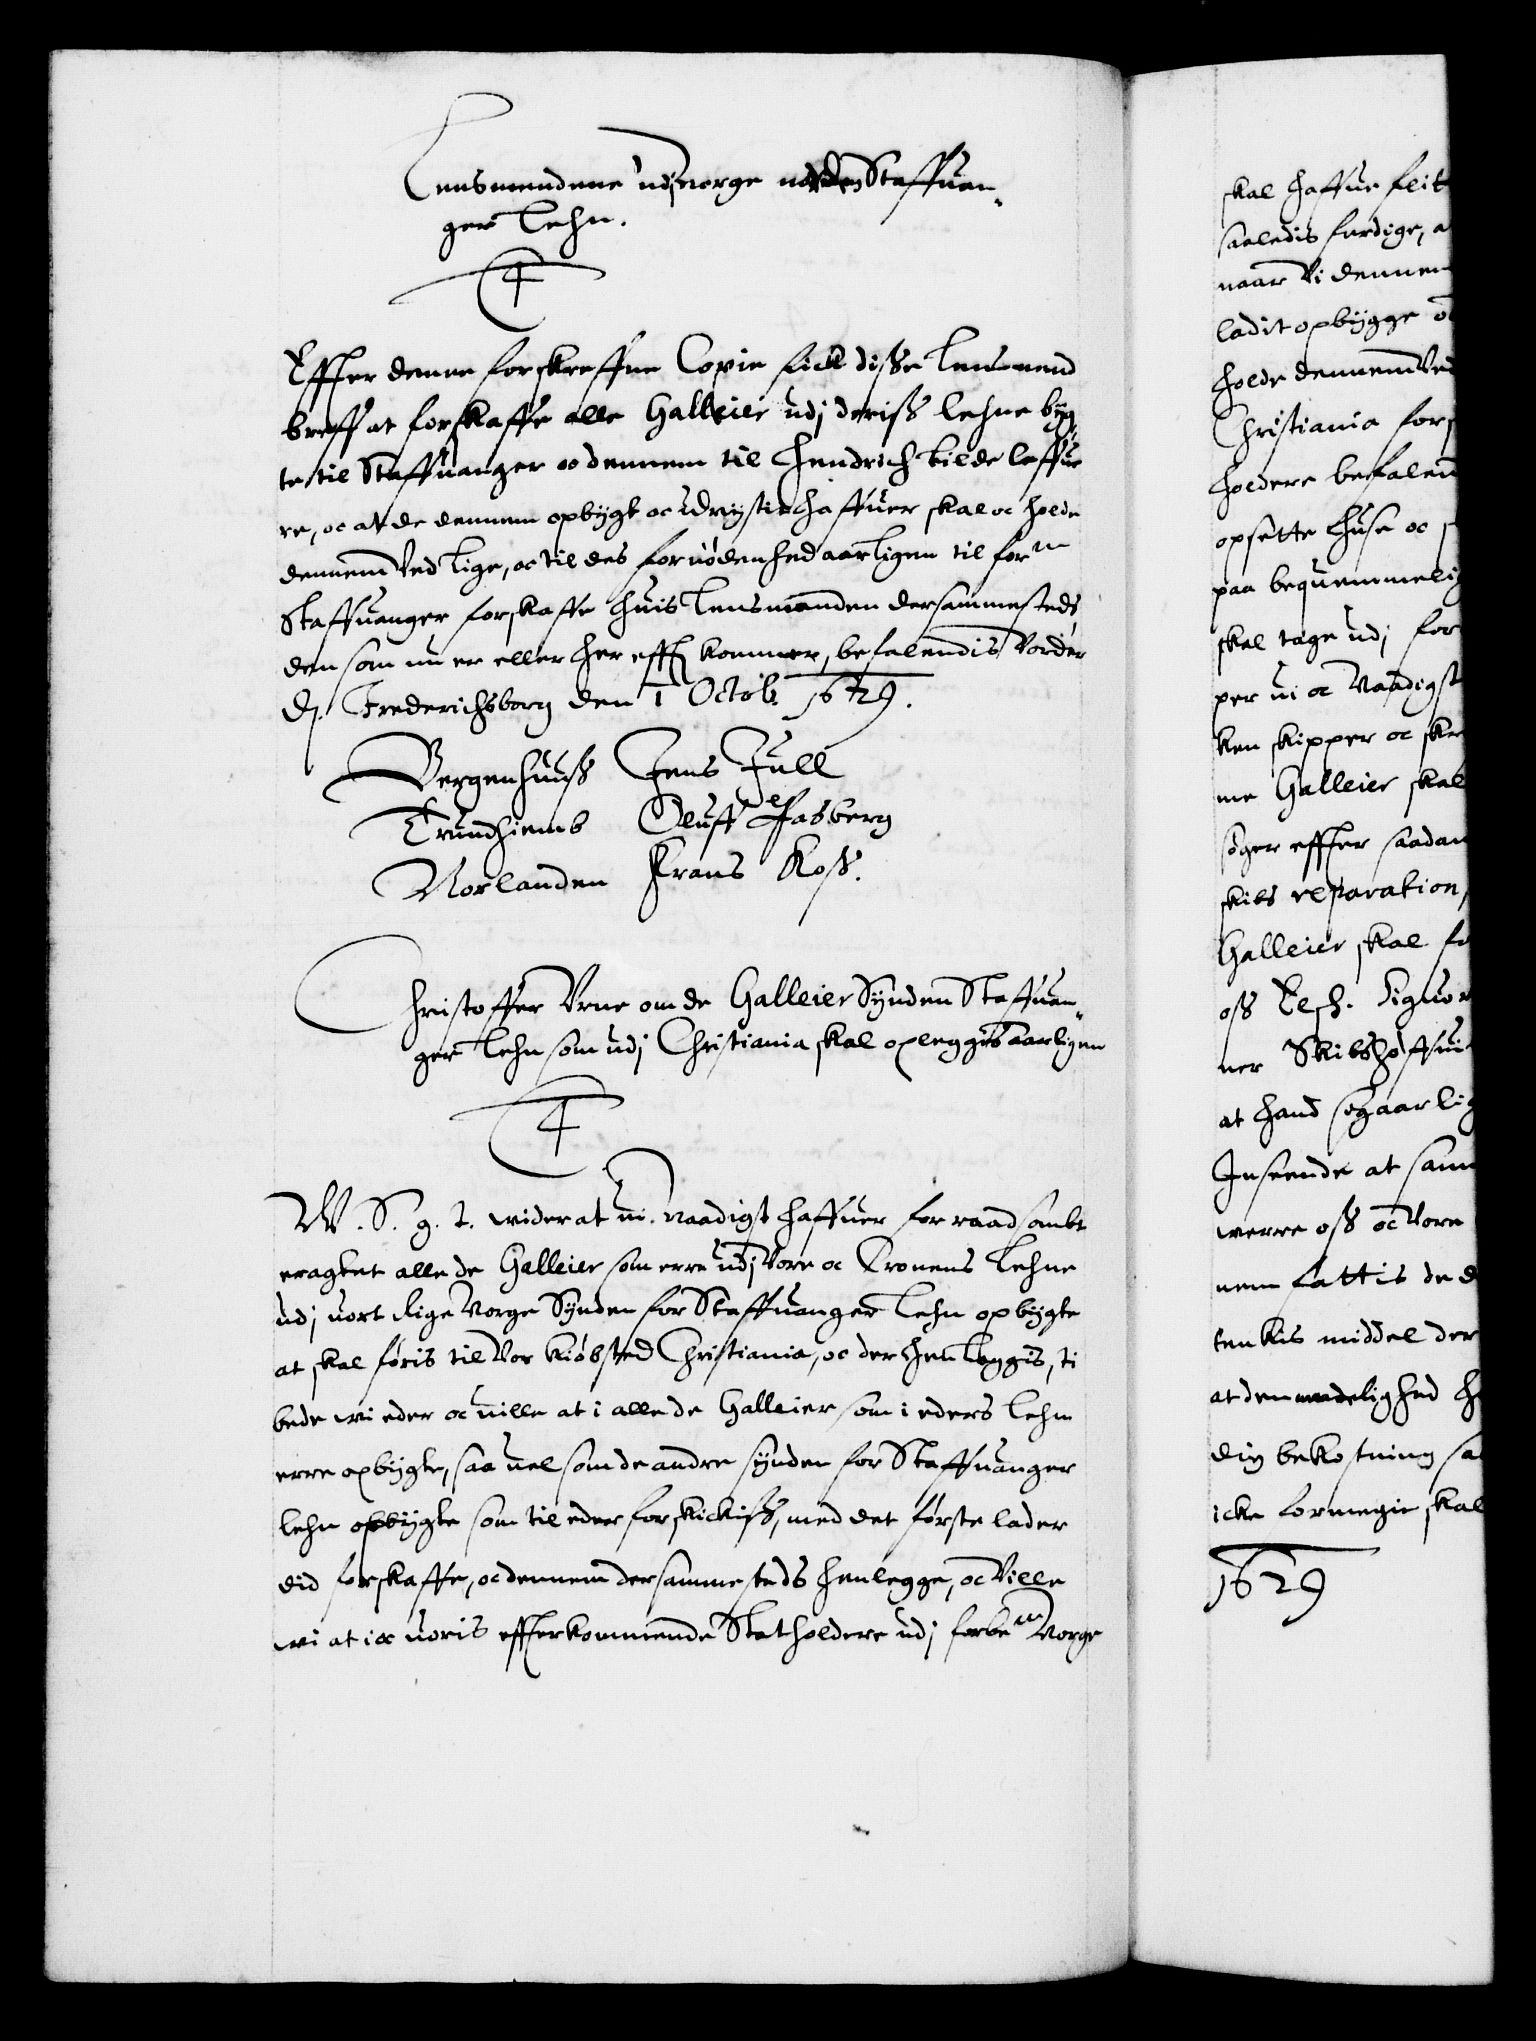 Lensmendene udj Norge norden Staffuan-
ger Lehn.
Effter denne forskreffne Copie fick disse Lensmend
breff at forskaffe alle Galleier udj deriss lehne byg-
te til Staffuanger oc dennem til Hendrich Bilde leffue-
re, oc at de dennem opbygt oc udrystit haffuer skal oc holde
dennem ved lige, oc til des fornødenhed aarligen til forne
Staffuanger forskaffe huis Lensmanden dersammesteds,
den som nu er eller her efft kommer, befalendis vorder
D. Frederichsborg den 1 Octob. 1629.
Bergenhuuss Jens Jull
Trundhiemb Oluff Passberg
Norlanden Frans Koss.
Christoffer Urne om de Galleier Synden Staffuan-
ger Lehn som udj Christiania skal opleggis aarligen
W. S. g. t. wider at ui naadigst haffuer for raadsambt
eragtet alle de Galleier som erre udj Vore oc Cronens Lehne
udj uort Rige Norge Synden for Staffuanger Lehn opbygte
at skal føris til Vor Kiøbsted Christiania, oc der hen leggis, ti
bede wi eder oc uille at i alle de Galleier som i eders Lehn
erre opbygte, saa uel som de andre synden for Staffuanger
Lehn opbygte som til eder forskickiss, med det første lader
did forskaffe, oc dennem dersammesteds henlegge, oc Ville
wi at i oc uoris effterkommende Statholdere udj forbene Norge
skal haffue flit
saaledis ferdige, a
naar Vi dennem
ladit opbygge oc
holde dennem Ved
Christiania fors
holdere befalen
opsette Huse oc s
paa bequemmelig
skal tage udj for
per ui oc Naadigst
ken skipper oc sker
me Galleier skal
søger effter saadan
skibs reparation,
Galleier skal fo
oss Elsk.
ner Skibshøffui
at hand og aarlig
Inseende at sam
werre oss oc Vore
nem fattis de d
tenkis middel der
at den
dig bekostning sa
icke formegit skal
1629